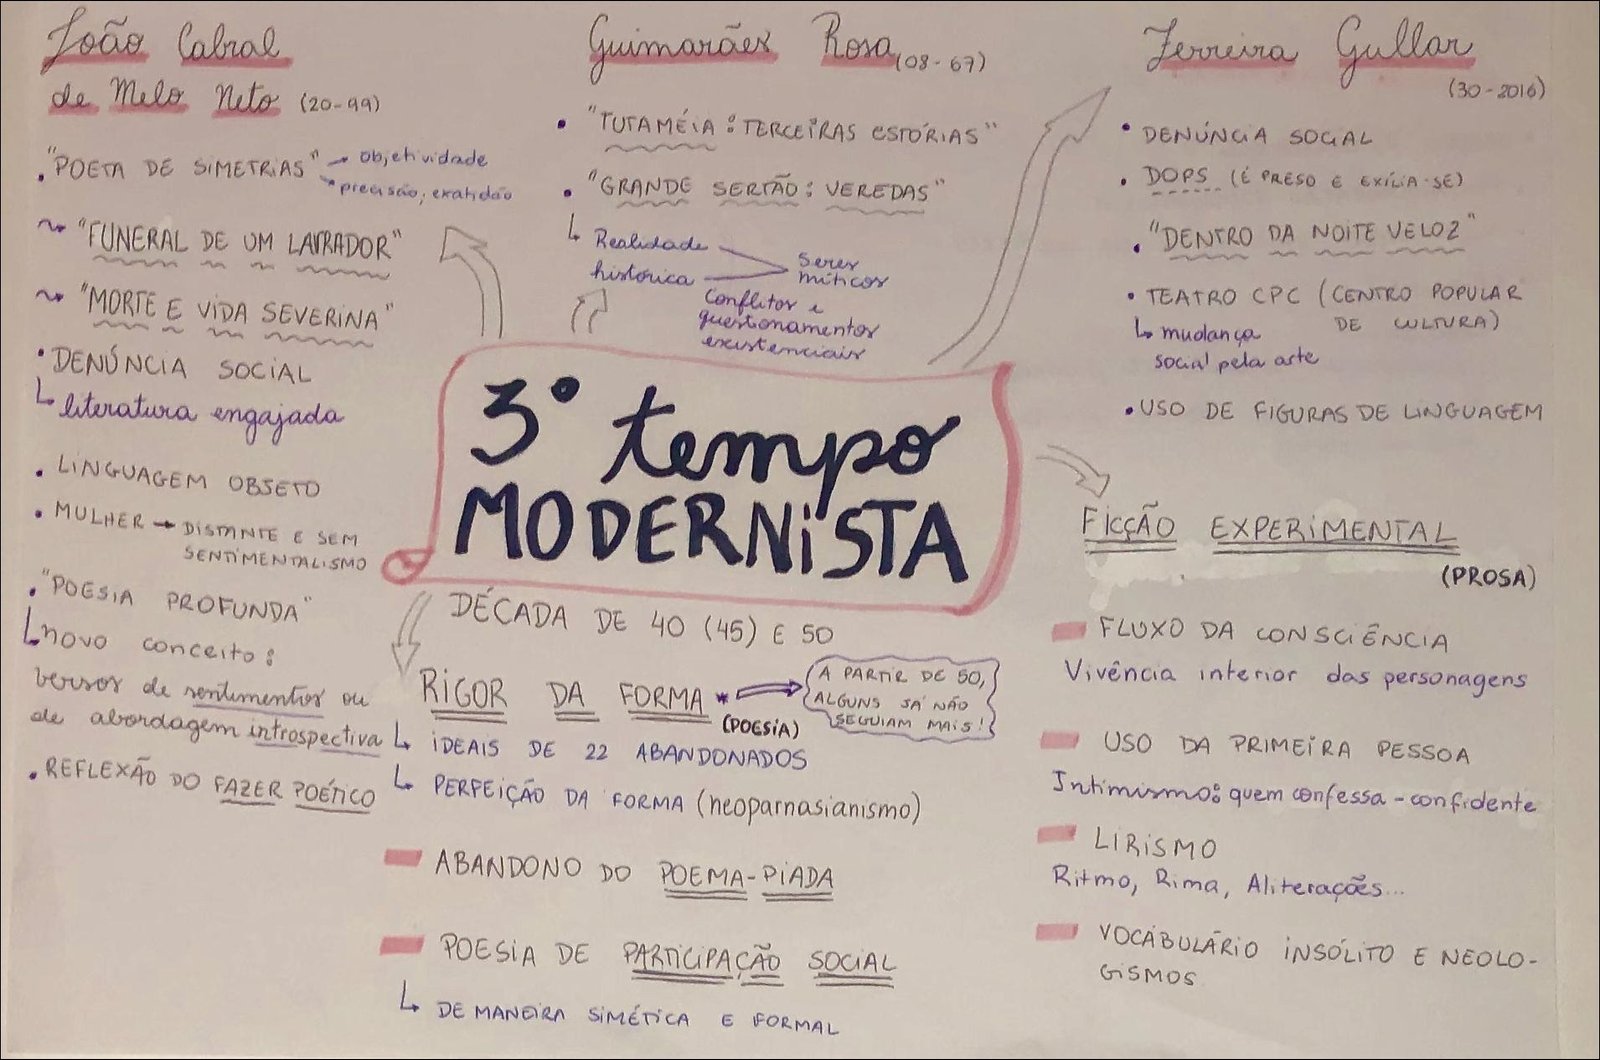 João Cabral
de Melo Neto (20-99)
• "POETA DE SIMETRIAS" → objetividade
→ precisão, exatidão
~ "FUNERAL DE UM LAVRADOR"
~ "MORTE E VIDA SEVERINA"
• DENÚNCIA SOCIAL
↳ literatura engajada
• LINGUAGEM OBJETO
• MULHER → DISTANTE E SEM
SENTIMENTALISMO
• "POESIA PROFUNDA"
↳ novo conceito:
versos de sentimentos ou
de abordagem introspectiva
• REFLEXÃO DO FAZER POÉTICO
Guimarães Rosa (08-67)
• "TUTAMÉIA: TERCEIRAS ESTÓRIAS"
• "GRANDE SERTÃO: VEREDAS"
↳ Realidade
histórica
Seres
míticos
Conflitos e
questionamentos
existenciais
Ferreira Gullar
(30-2016)
• DENÚNCIA SOCIAL
• DOPS (É PRESO E EXÍLIA-SE)
• "DENTRO DA NOITE VELOZ"
• TEATRO CPC (CENTRO POPULAR
DE CULTURA)
↳ mudança
social pela arte
• USO DE FIGURAS DE LINGUAGEM
3° tempo
MODERNISTA
DÉCADA DE 40 (45) E 50
RIGOR DA FORMA *
(POESIA)
A PARTIR DE 50,
ALGUNS JÁ NÃO
SEGUIAM MAIS!
↳ IDEAIS DE 22 ABANDONADOS
↳ PERFEIÇÃO DA FORMA (neoparnasianismo)
ABANDONO DO POEMA-PIADA
POESIA DE PARTICIPAÇÃO SOCIAL
↳ DE MANEIRA SIMÉTICA E FORMAL
FICÇÃO EXPERIMENTAL
(PROSA)
FLUXO DA CONSCIÊNCIA
Vivência interior das personagens
USO DA PRIMEIRA PESSOA
Intimismo: quem confessa - confidente
LIRISMO
Ritmo, Rima, Aliterações...
VOCABULÁRIO INSÓLITO E NEOLO-
GISMOS